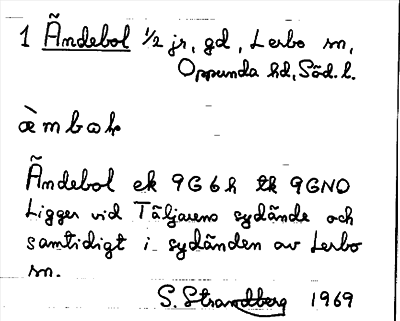 1 Ändebol 1/2 jr, gd, Lerbo sn,
Oppunda hd, Söd. l.
æ̀mboḷ
Ändebol ek 9G6h tk 9GNO
Ligger vid Täljarens sydände och
samtidigt i sydänden av Lerbo
sn.
S. Strandberg 1969